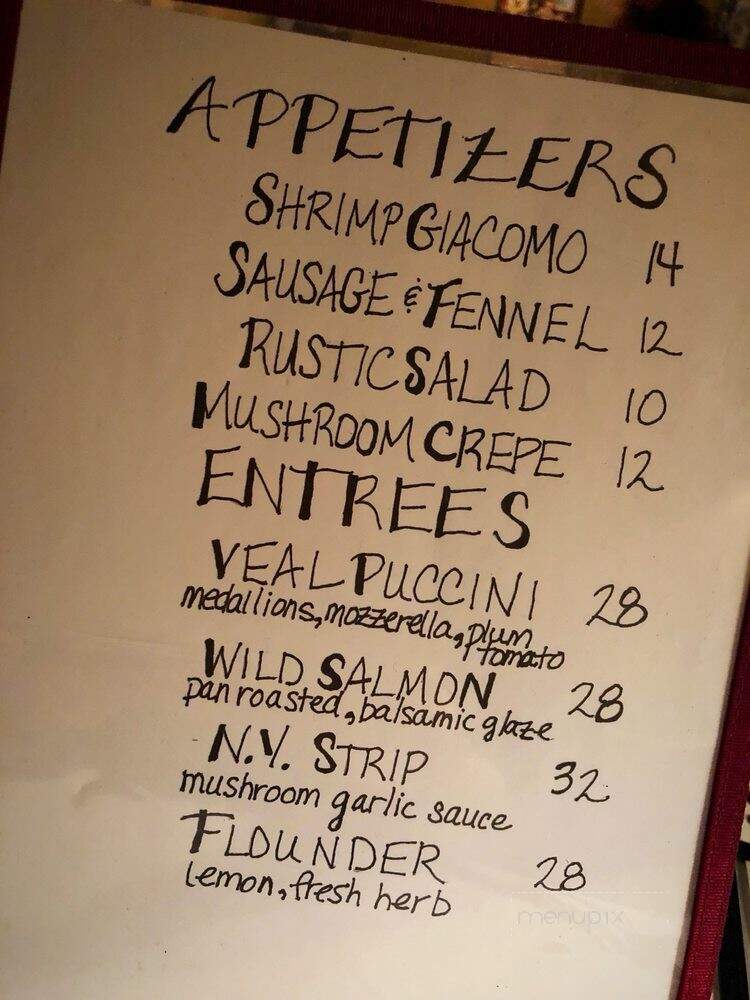 APPETIZERS
SHRIMP GIACOMO 14
SAUSAGE & FENNEL 12
RUSTIC SALAD 10
MUSHROOM CREPE 12
ENTREES
VEAL PUCCINI 28
medallions, mozzerella, plum
tomato
WILD SALMON 28
pan roasted, balsamic glaze
N.Y. STRIP 32
mushroom garlic sauce
FLOUNDER 28
lemon, fresh herb
menupix